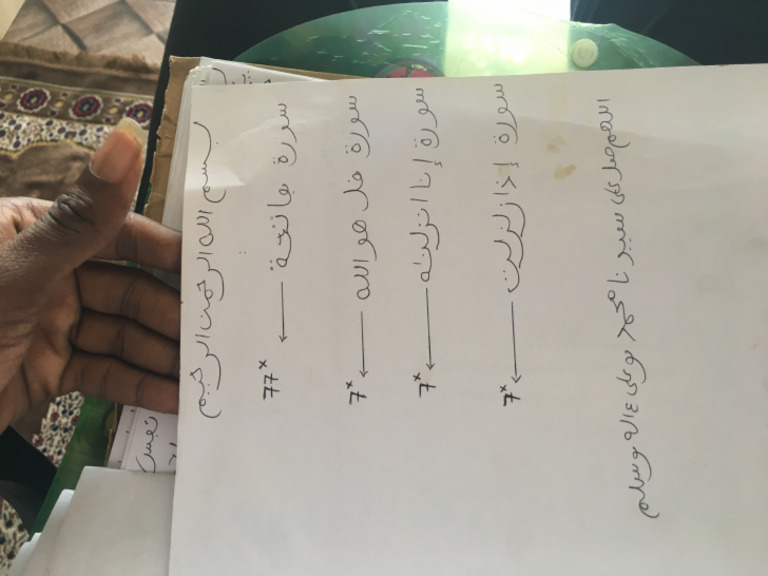 بسم الله الرحمن الرحيم
سورة فاتحة ← 77x
سورة قل هو الله ← 7x
سورة إنا انزلنه ← 7x
سورة إذا زلزلت ← 7x
اللهم صل على سيدنا محمد وعلى ءاله وسلم